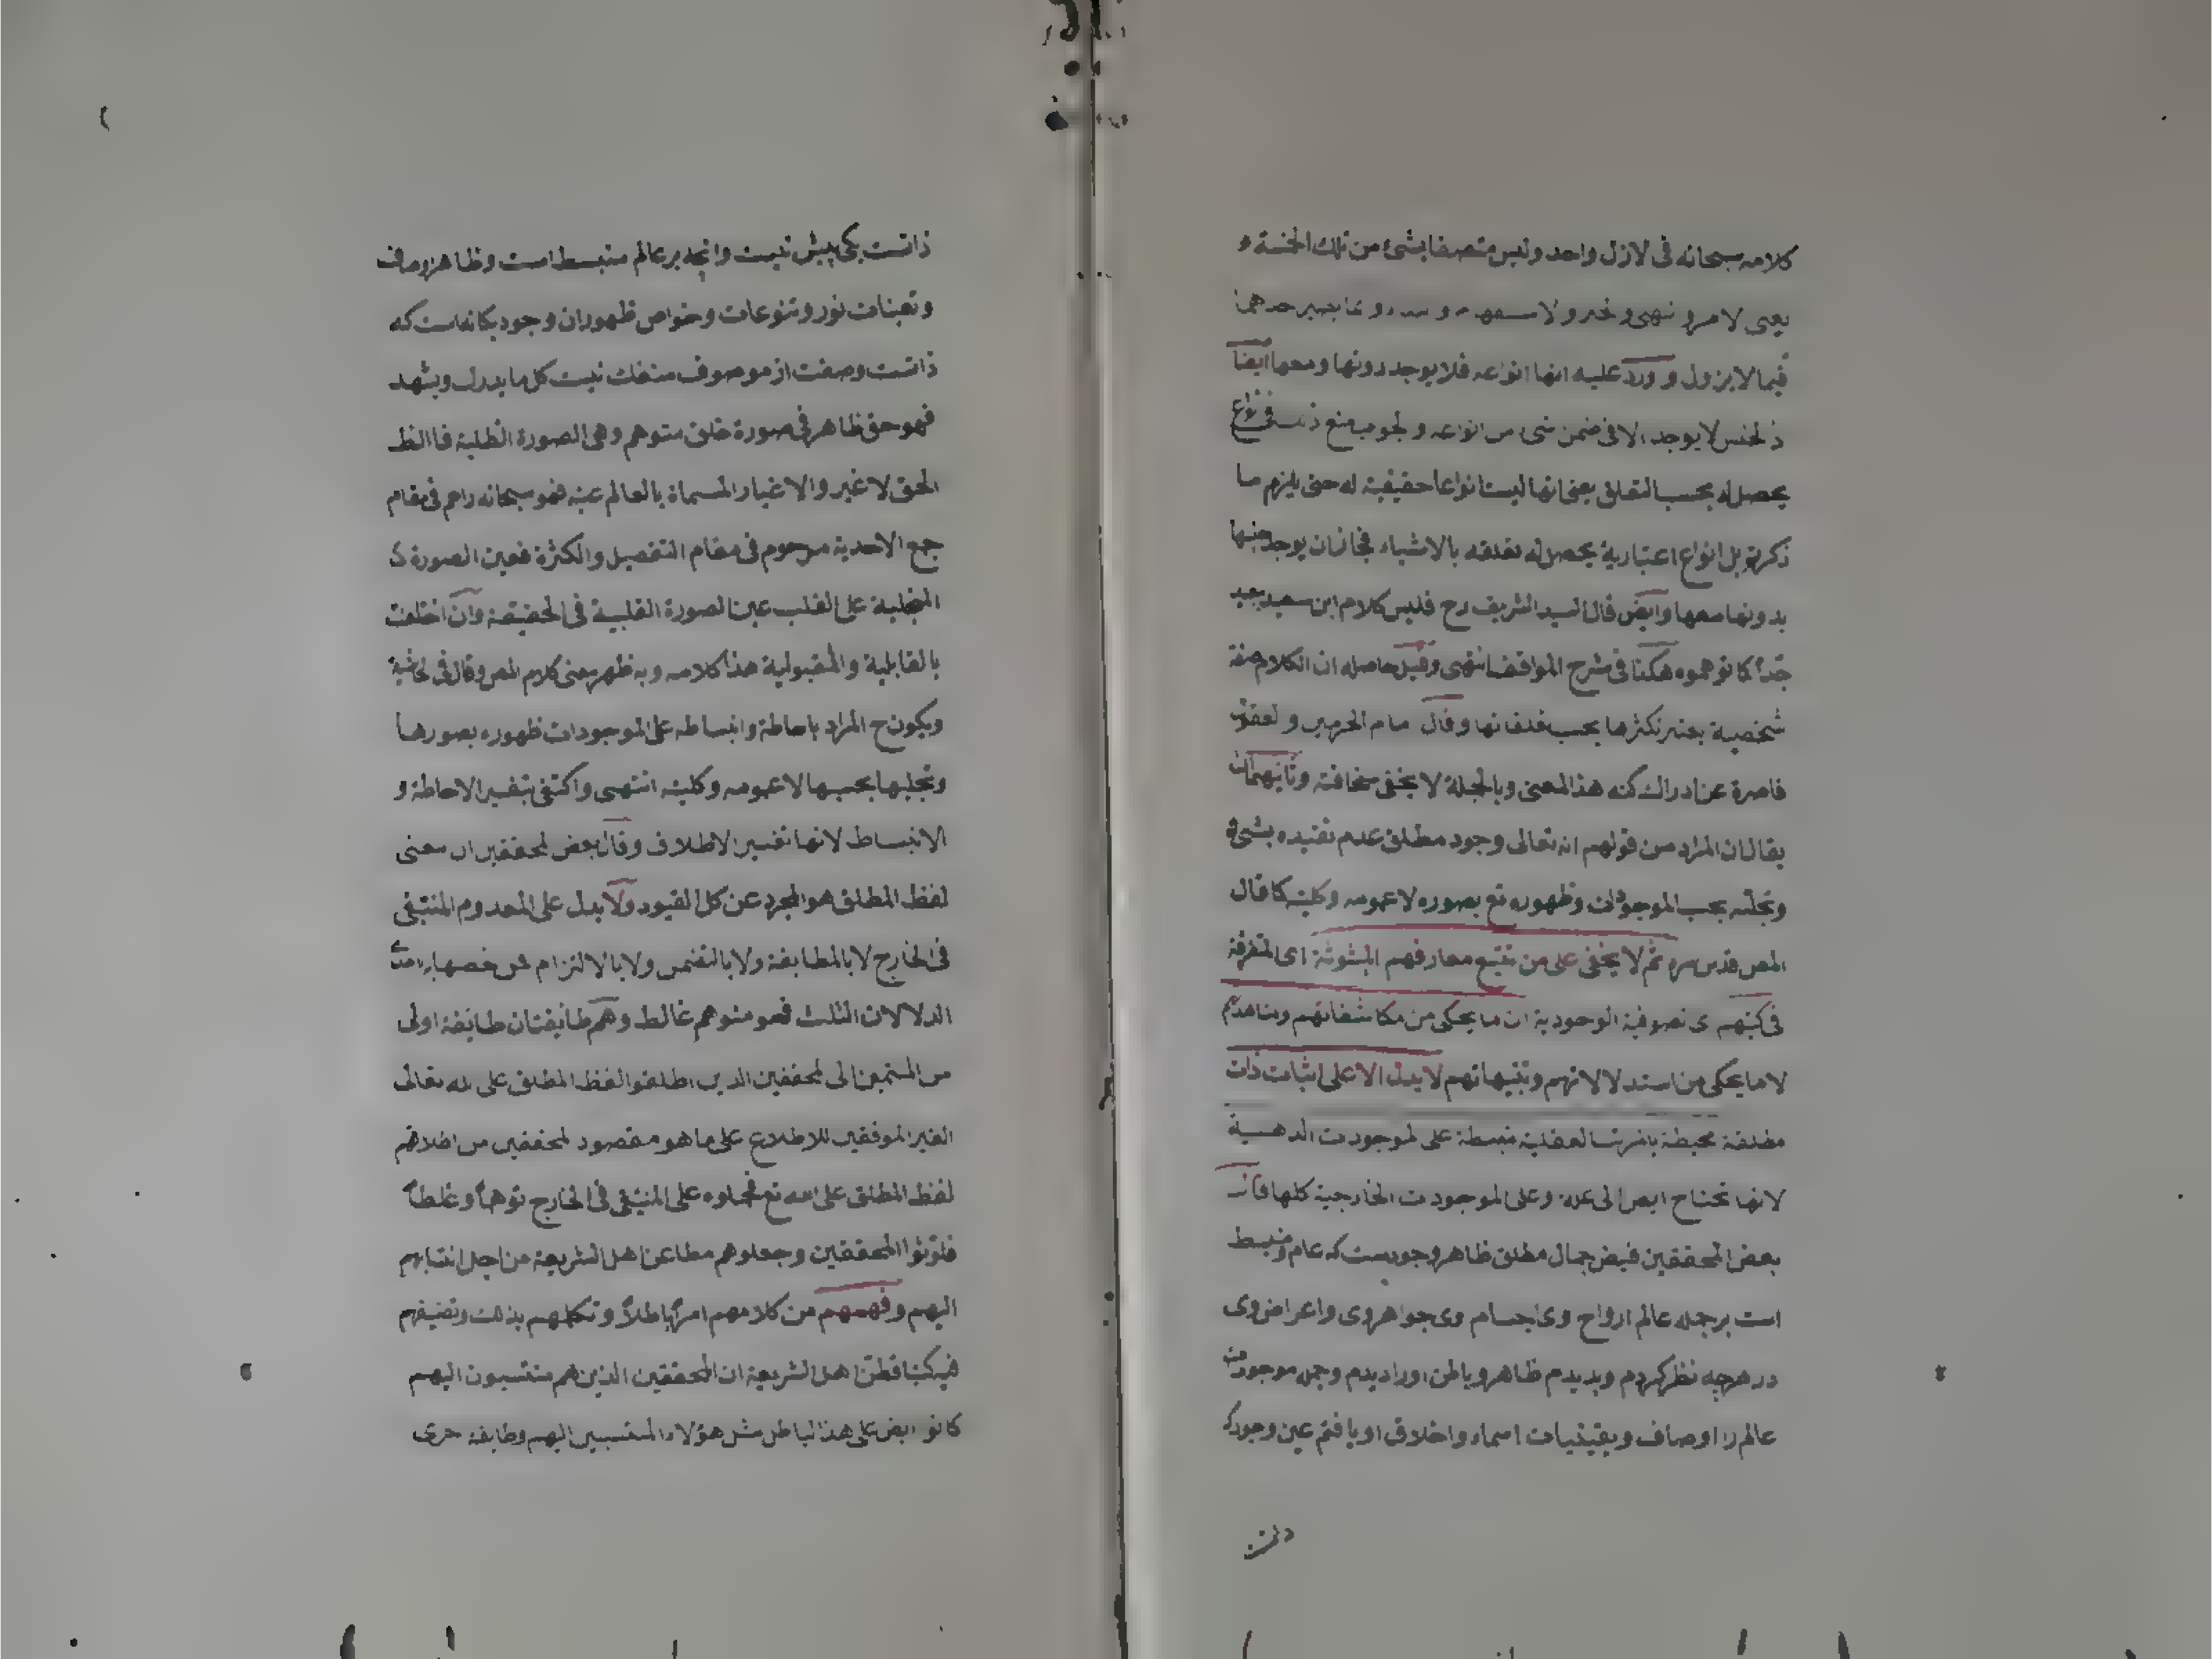 كلامه سبحانه فى الازل واحد وليس متصفا بشئ من تلك الخمسة و
يعنى الامر و نهى و خبر و الاستفهام و نداء و انما يصير احدها
فيما لا يزول و ورد عليه انها انواعه فلا يوجد دونها ومعها ايضا
اذ الجنس لا يوجد الا فى ضمن شئ من انواعه و الجواب منع ذلك فى انواع
يحصل له بحسب التعلق يعنى انها ليست انواعا حقيقية له حتى يلزم ما
ذكرتم بل انواع اعتبارية يحصل له بتعلقه بالاشياء فجاز ان يوجد جنسها
بدونها ومعها وايض قال السيد الشريف رح فليس كلام ابن سعيد ببعيد
جدّا كما توهموه هكذا فى شرح المواقف انتهى وقيل حاصله ان الكلام صفة
شخصية يعتبر تكثرها بحسب تعلقاتها وقال امام الحرمين و العقول
قاصرة عن ادراك كنه هذا المعنى وبالجملة لا يخفى سخافته وثانيهما ان
يقال ان المراد من قولهم انه تعالى وجود مطلق عدم تقيده بشئ
وتجليه بحسب الموجودات وظهوره تع بصوره لا عمومه وكليته كما قال
المص قدس سره ثم لا يخفى على من تتبع معارفهم المبثوثة اى المتفرقة
فى كتبهم اى الصوفية الوجودية ان ما يحكى من مكاشفاتهم ومشاهداتهم
لا ما يحكى من استدلالاتهم وتنبيهاتهم لا يدل الا على اثبات ذات
مطلقة محيطة بالمراتب العقلية منبسطة على الموجودات الذهنية
لانها تحتاج ايض الى علة وعلى الموجودات الخارجية كلها قال
بعض المحققين فيض جمال مطلق ظاهر وجوديست كه عام و منبسط
است بر جمله عالم ارواح وى اجسام وى جواهر وى واعراض وى
در هرچه نظر كردم وبديدم ظاهر وباطن اورا ديدم وجمله موجودات
عالم را اوصاف و اسماء واخلاق او يافتم عين وجود كه
ذات
ذاتست يكى بيش نيست وآنچه بر عالم منبسط است وظاهر اوصاف
وتعينات نور وتنوعات وخواص ظهوران وجود يگانه است كه
ذاتست وصفت از موصوف منفك نيست كل ما يدرك ويشهد
فهو حق ظاهر فى صورة خلق متوهم وهى الصورة الظلية فالظل
الحق لا غير والاغيار المسماة بالعالم عينه فهو سبحانه راحم فى مقام
جمع الاحدية مرحوم فى مقام التفصيل والكثرة فعين الصورة
المتجلية على القلب عين الصورة القلبية فى الحقيقة وان اختلفت
بالقابلية والمقبولية هذا كلامه وبه ظهر معنى كلام المص وقال فى الحاشية
ويكون ح المراد باحاطة وانبساطه على الموجودات ظهوره بصورها
وتجليها بحسبها لا عمومه وكليته انتهى واكتفى بتفسير الاحاطة و
الانبساط لانها تفسير الاطلاق وقال بعض المحققين ان معنى
لفظ المطلق هو المجرد عن كل القيود ولا يدل على المعدوم المنتفى
فى الخارج لا بالمطابقة ولا بالتضمن ولا بالالتزام فمن خصها باحدى
الدلالات الثلث فهو متوهم غالط وهم طايفتان طايفة اولى
من المنتمين الى المحققين الذين اطلقوا لفظ المطلق على الله تعالى
الغير الموفقين للاطلاع على ما هو مقصود المحققين من اطلاقهم
لفظ المطلق على الله تع فحملوه على المنتفى فى الخارج توهماً وغلطاً
فلوّثوا المحققين وجعلوهم مطاعن اهل الشريعة من اجل انتسابهم
اليهم وفهمهم من كلامهم امراً باطلاً و تكلمهم بذلك وتصنيفهم
فيه كتبا فظن اهل الشريعة ان المحققين الذين هم منتسبون اليهم
كانوا ايض على هذا الباطل مثل هؤلاء المنتسبين اليهم وطايفة اخرى